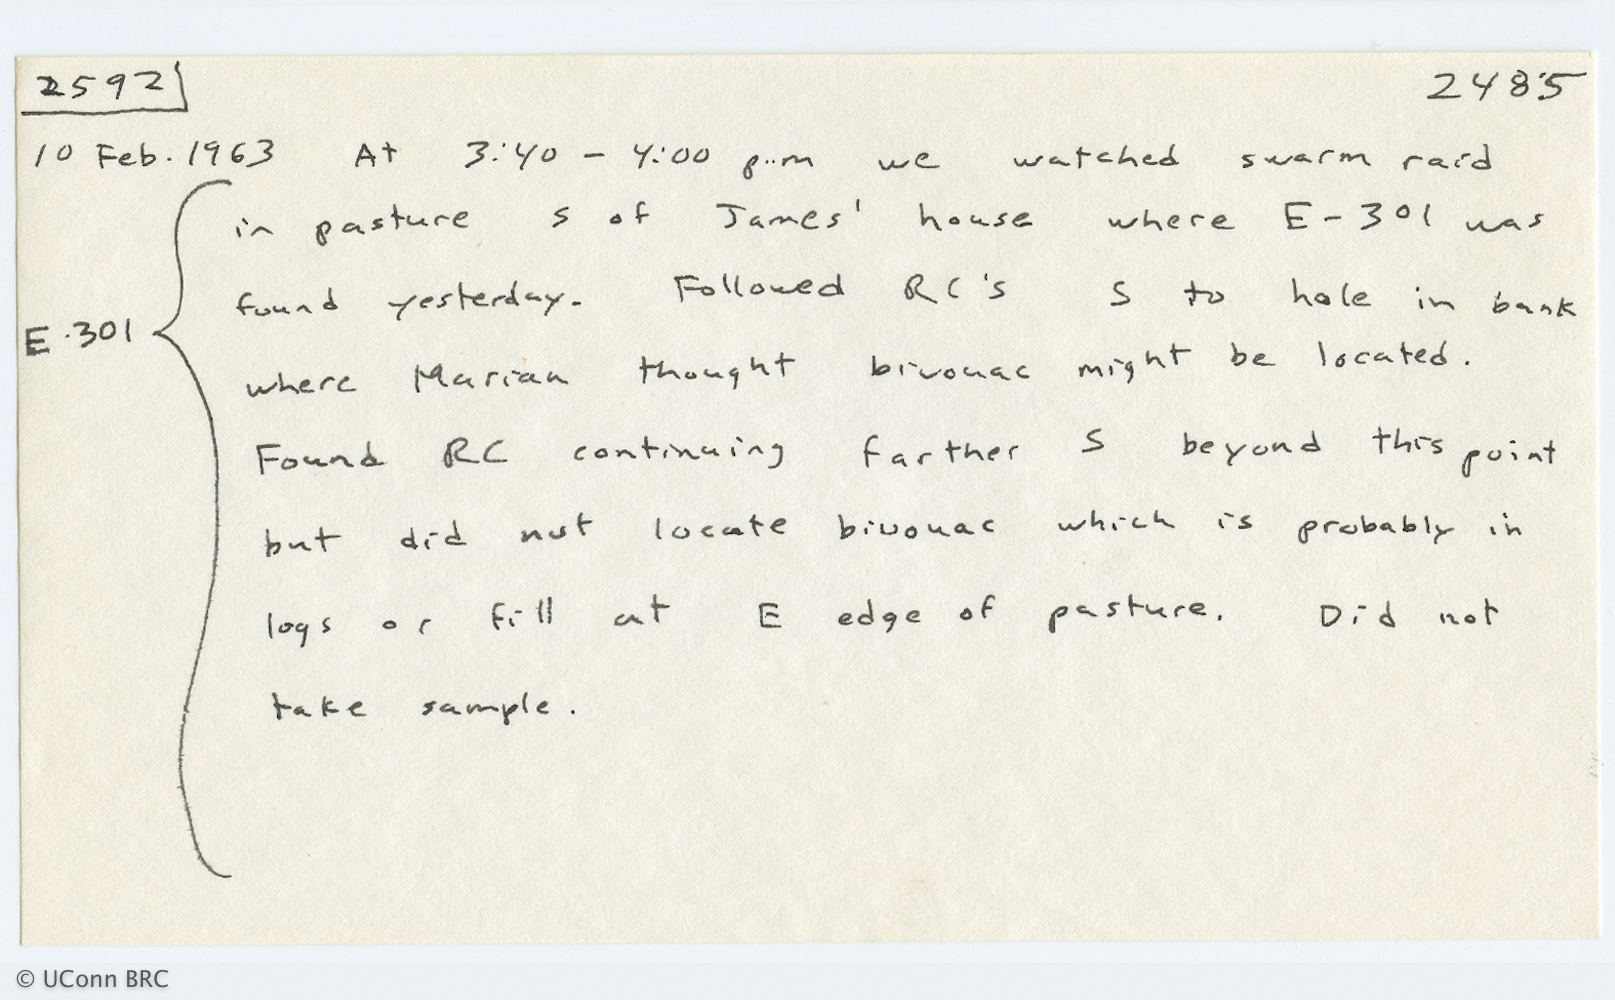 2592 2485
10 Feb. 1963 At 3:40 - 4:00 p.m we watched swarm raid
in pasture S of James' house where E-301 was
found yesterday. Followed RC's S to hole in bank
E-301
where Marian thought bivouac might be located.
Found RC continuing farther S beyond this point
but did not locate bivouac which is probably in
logs or fill at E edge of pasture. Did not
take sample.
© UConn BRC